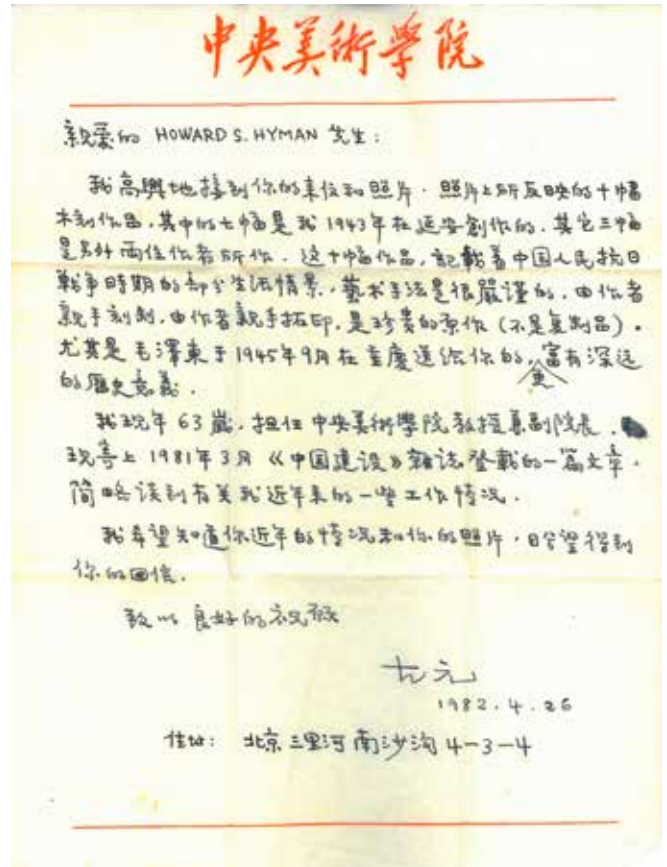 中央美術学院
親爱的 HOWARD S. HYMAN 先生：
我高興地接到你的来信和照片。照片上所反映的十幅
木刻作品，其中的七幅是我1943年在延安創作的，其它三幅
是另外两位作者所作。这十幅作品，記載着中国人民抗日
戰争時期的部分生活情景，藝术手法是很嚴谨的，由作者
親手刻制，由作者親手拓印，是珍贵的原作（不是复制品）。
尤其是毛澤東于1945年9月在重慶送给你的，更富有深远
的歷史意義。
我现年63歲，担任中央美術學院教授兼副院長，
现寄上1981年3月《中国建设》雜誌登載的一篇文章，
简略谈到有关我近年来的一些工作情况。
我希望知道你近年的情况和你的照片，盼望得到
你的回信。
致以 良好的祝福
古元
1982.4.26
住址： 北京三里河南沙沟4-3-4